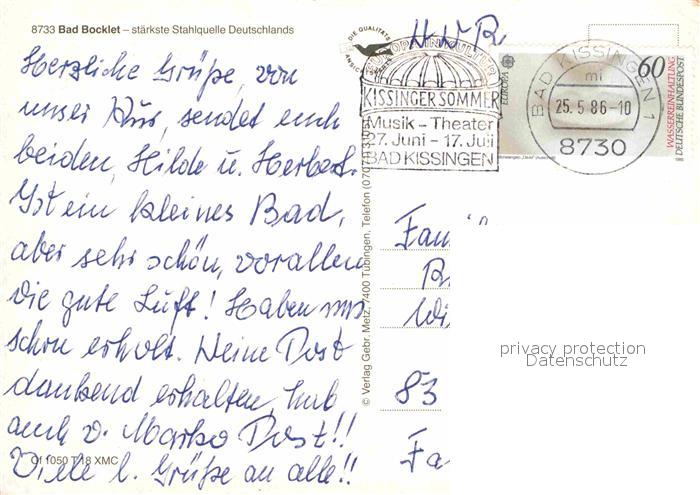 8733 Bad Bocklet – stärkste Stahlquelle Deutschlands
Herzliche Grüße, von
unser Kur, sendet euch
beiden, Hilde u. Herbert.
Ist ein kleines Bad,
aber sehr schön, vorallem
die gute Luft! Haben uns
schon erholt. Deine Post
dankend erhalten, hab
auch v. Marko Post!!
Viele l. Grüße an alle!!
Of 1050 T 18 XMC
© Verlag Gebr. Metz, 7400 Tübingen, Telefon
DIE QUALITÄTS
EUROPA IN KULTUR
KISSINGER SOMMER
Musik – Theater
27. Juni – 17. Juli
BAD KISSINGEN
EUROPA
60
WASSERREINHALTUNG
DEUTSCHE BUNDESPOST
BAD KISSINGEN 1
mi
25.5.86-10
8730
Fam
Wi
83
Fa
privacy protection
Datenschutz